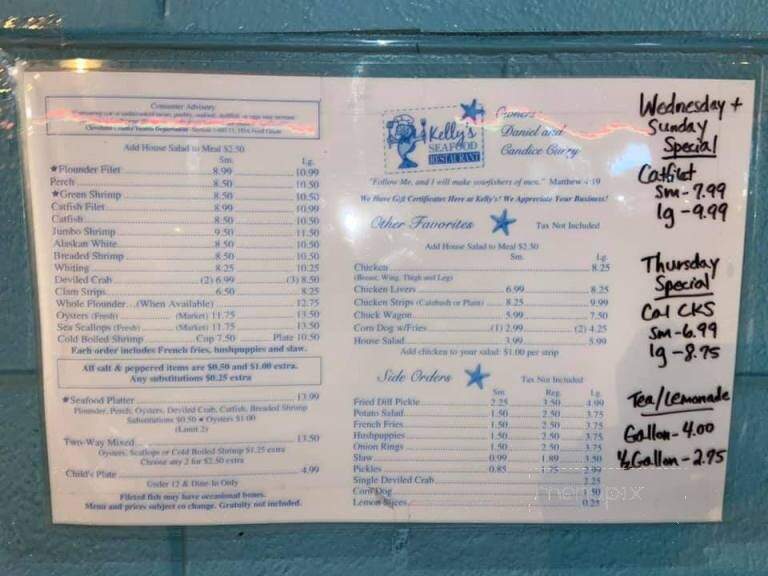 Consumer Advisory
Add House Salad to Meal $2.50
Sm. Lg.
★Flounder Filet 8.99 10.99
Perch 8.50 10.50
★Green Shrimp 8.50 10.50
Catfish Filet 8.99 10.99
Catfish 8.50 10.50
Jumbo Shrimp 9.50 11.50
Alaskan White 8.50 10.50
Breaded Shrimp 8.50 10.50
Whiting 8.25 10.25
Deviled Crab (2) 6.99 (3) 8.50
Clam Strips 6.50 8.25
Whole Flounder...(When Available) 12.75
Oysters (Fresh) (Market) 11.75 13.50
Sea Scallops (Fresh) (Market) 11.75 13.50
Cold Boiled Shrimp Cup 7.50 Plate 10.50
Each order includes French fries, hushpuppies and slaw.
All salt & peppered items are $0.50 and $1.00 extra.
Any substitutions $0.25 extra
★Seafood Platter 13.99
Flounder, Perch, Oysters, Deviled Crab, Catfish, Breaded Shrimp
Substitutions $0.50 ★ Oysters $1.00
(Limit 2)
Two-Way Mixed 13.50
Oysters, Scallops or Cold Boiled Shrimp $1.25 extra
Choose any 2 for $2.50 extra
Child's Plate 4.99
Under 12 & Dine-In Only
Fileted fish may have occasional bones.
Menu and prices subject to change. Gratuity not included.
Kelly's
SEAFOOD
RESTAURANT
Owners
Daniel and
Candice Curry
"Follow Me, and I will make you fishers of men." Matthew 4:19
We Have Gift Certificates Here at Kelly's! We Appreciate Your Business!
Other Favorites Tax Not Included
Add House Salad to Meal $2.50
Sm. Lg.
Chicken 8.25
(Breast, Wing, Thigh and Leg)
Chicken Livers 6.99 8.25
Chicken Strips (Calabash or Plain) 8.25 9.99
Chuck Wagon 5.99 7.50
Corn Dog w/Fries (1) 2.99 (2) 4.25
House Salad 3.99 5.99
Add chicken to your salad: $1.00 per strip
Side Orders Tax Not Included
Sm. Reg. Lg.
Fried Dill Pickle 2.25 3.50 4.99
Potato Salad 1.50 2.50 3.75
French Fries 1.50 2.50 3.75
Hushpuppies 1.50 2.50 3.75
Onion Rings 1.50 2.50 3.75
Slaw 0.99 1.89 3.50
Pickles 0.85 1.75 2.99
Single Deviled Crab 2.25
Corn Dog 1.50
Lemon Slices 0.25
Wednesday +
Sunday
Special
Catfilet
sm - 7.99
lg - 9.99
Thursday
Special
Cal CKS
Sm - 6.99
lg - 8.75
Tea/Lemonade
Gallon - 4.00
½ Gallon - 2.75
menupix